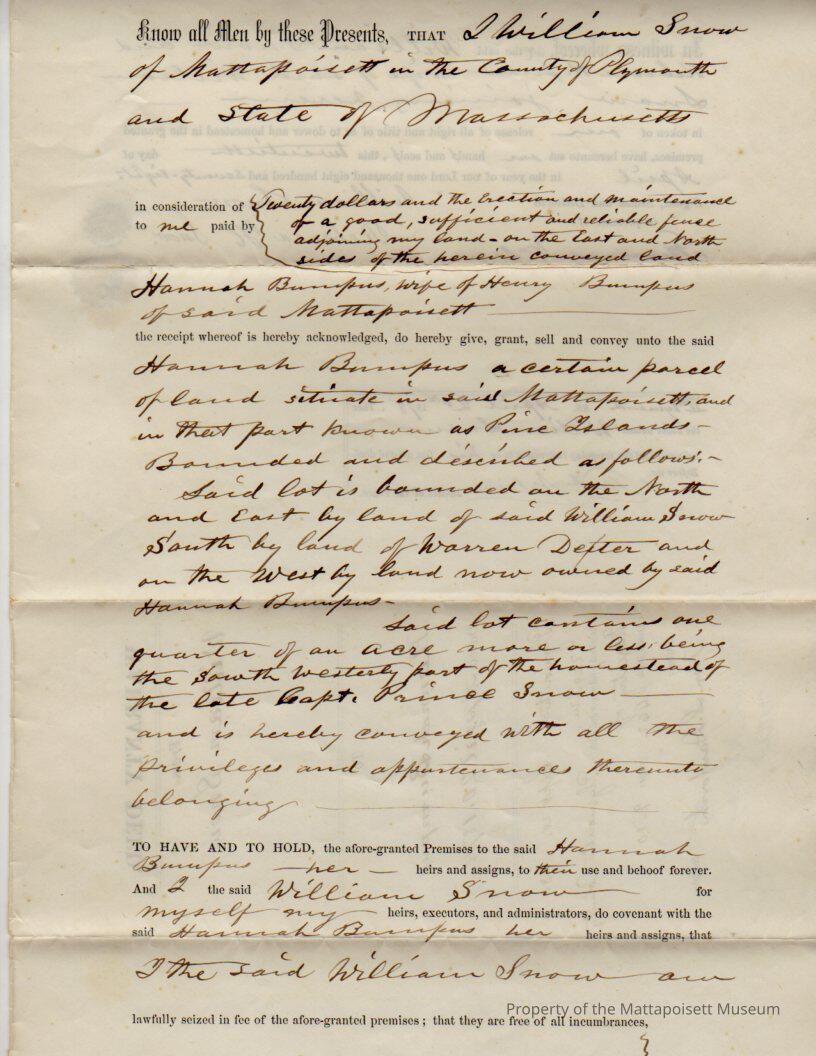 Know all Men by these Presents, THAT I William Snow
of Mattapoisett in the County of Plymouth
and State of Massachusetts
in consideration of Twenty dollars and the Erection and maintenance
of a good, sufficient and reliable fence
to me paid by adjoining my land - on the East and North
sides of the herein conveyed land
Hannah Bumpus, wife of Henry Bumpus
of said Mattapoisett
the receipt whereof is hereby acknowledged, do hereby give, grant, sell and convey unto the said
Hannah Bumpus a certain parcel
of land situate in said Mattapoisett, and
in that part known as Pine Islands -
Bounded and described as follows: -
Said lot is bounded on the North
and East by land of said William Snow
South by land of Warren Dexter and
on the West by land now owned by said
Hannah Bumpus -
Said lot contains one
quarter of an acre more or less: being
the South Westerly part of the homestead of
the late Capt. Prince Snow
and is hereby conveyed with all the
privileges and appurtenances thereunto
belonging
TO HAVE AND TO HOLD, the afore-granted Premises to the said Hannah
Bumpus her heirs and assigns, to their use and behoof forever.
And I the said William Snow for
myself my heirs, executors, and administrators, do covenant with the
said Hannah Bumpus her heirs and assigns, that
I the said William Snow am
lawfully seized in fee of the afore-granted premises; that they are free of all incumbrances,
Property of the Mattapoisett Museum